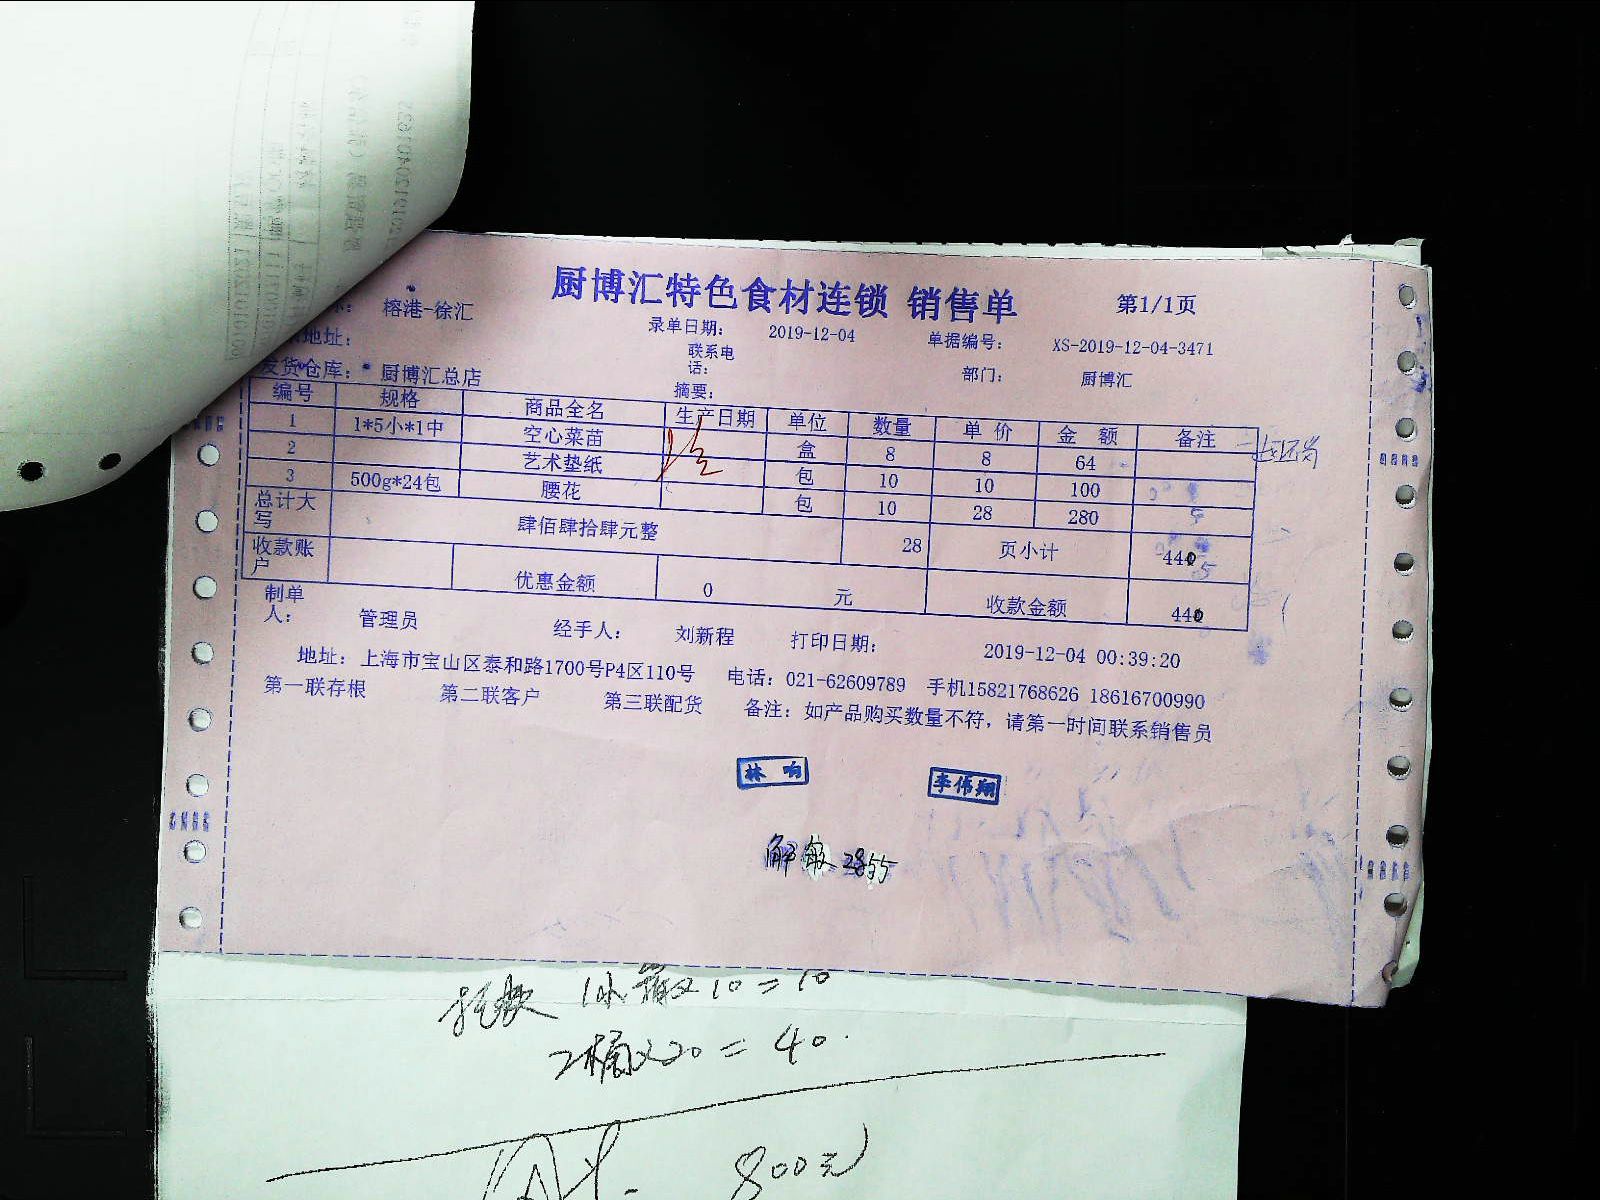 厨博汇特色食材连锁 销售单 第1/1页
榕港-徐汇
录单日期: 2019-12-04 单据编号: XS-2019-12-04-3471
地址:
联系电话:
部门: 厨博汇
发货仓库: 厨博汇总店
摘要:
编号 规格 商品全名 生产日期 单位 数量 单价 金额 备注
1 1*5小*1中 空心菜苗 盒 8 8 64
2 艺术垫纸 包 10 10 100
3 500g*24包 腰花 包 10 28 280
总计大写 肆佰肆拾肆元整 28 页小计 440
收款账户 优惠金额 0 元 收款金额 440
制单人: 管理员 经手人: 刘新程 打印日期: 2019-12-04 00:39:20
地址: 上海市宝山区泰和路1700号P4区110号 电话: 021-62609789 手机15821768626 18616700990
第一联存根 第二联客户 第三联配货 备注: 如产品购买数量不符, 请第一时间联系销售员
林响 李伟翔
解敏 2855
10 = 10
2桶×20 = 40
800元